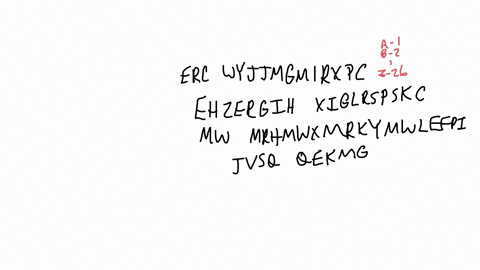 A-1
B-2
ERC WYJJMGMIRXPC Z-26
EHZERGIH XIGLRSPSKC
MW MRHMWXMRKYMWLEFPI
JVSQ QEKMG